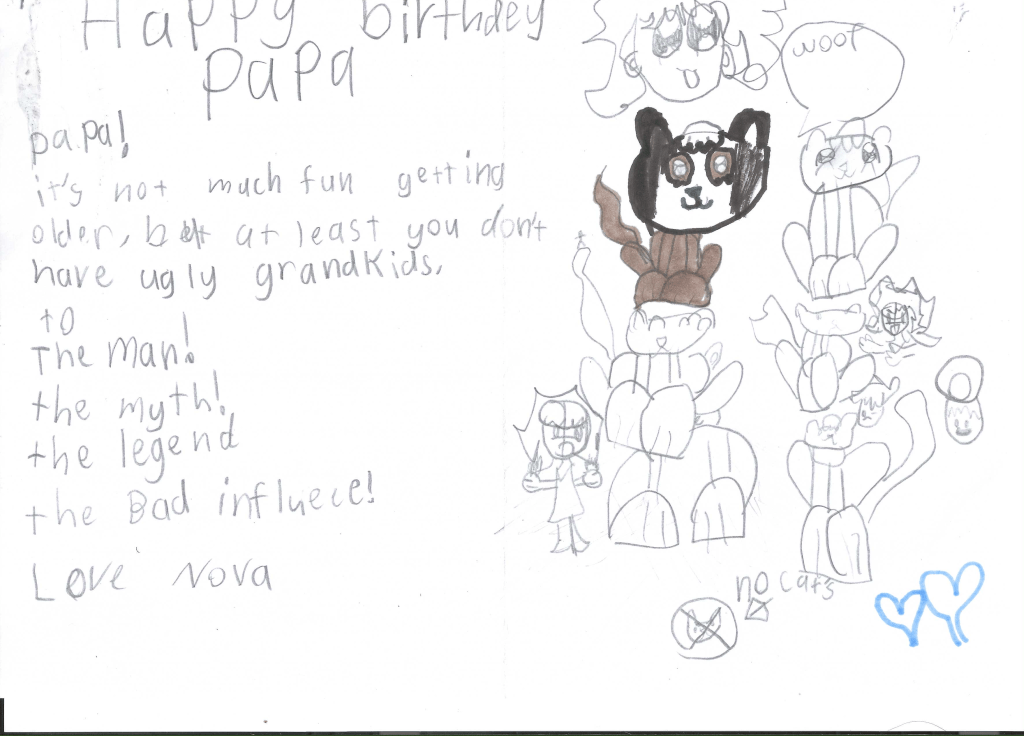 Happy birthday
papa
papa!
it's not much fun getting
older, but at least you don't
have ugly grandkids.
to
The Man!
the myth!
the legend
the Bad influece!
Love Nova
woof
no cats